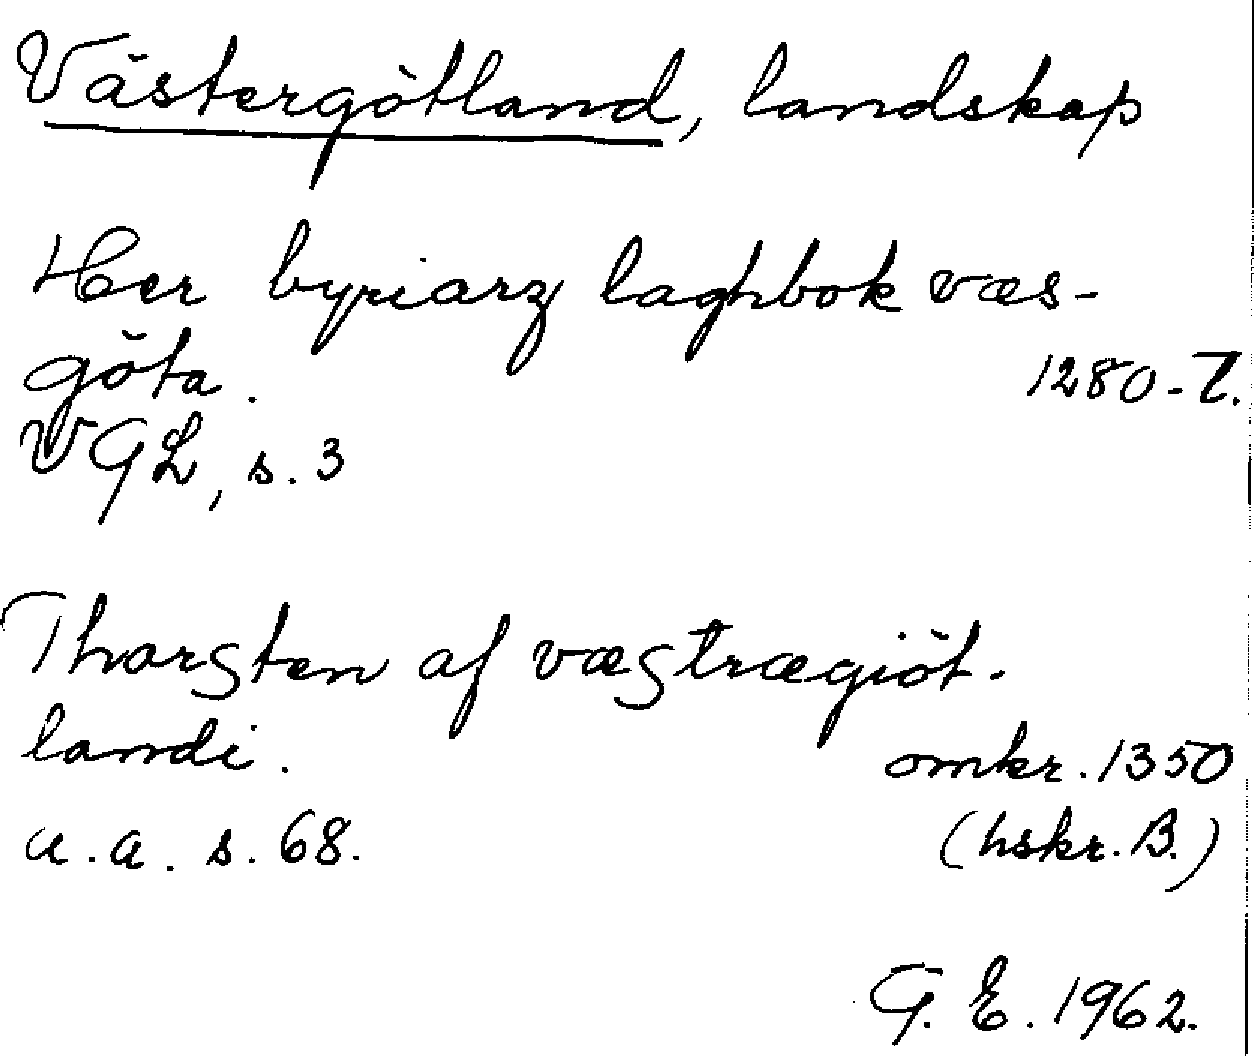 Västergötland, landskap
Her byriarz laghbok væs-
göta. 1280-T.
VGL, s. 3
Thorsten af væstrægiöt-
landi. omkr. 1350
a. a. s. 68. (hskr. B.)
G. E. 1962.